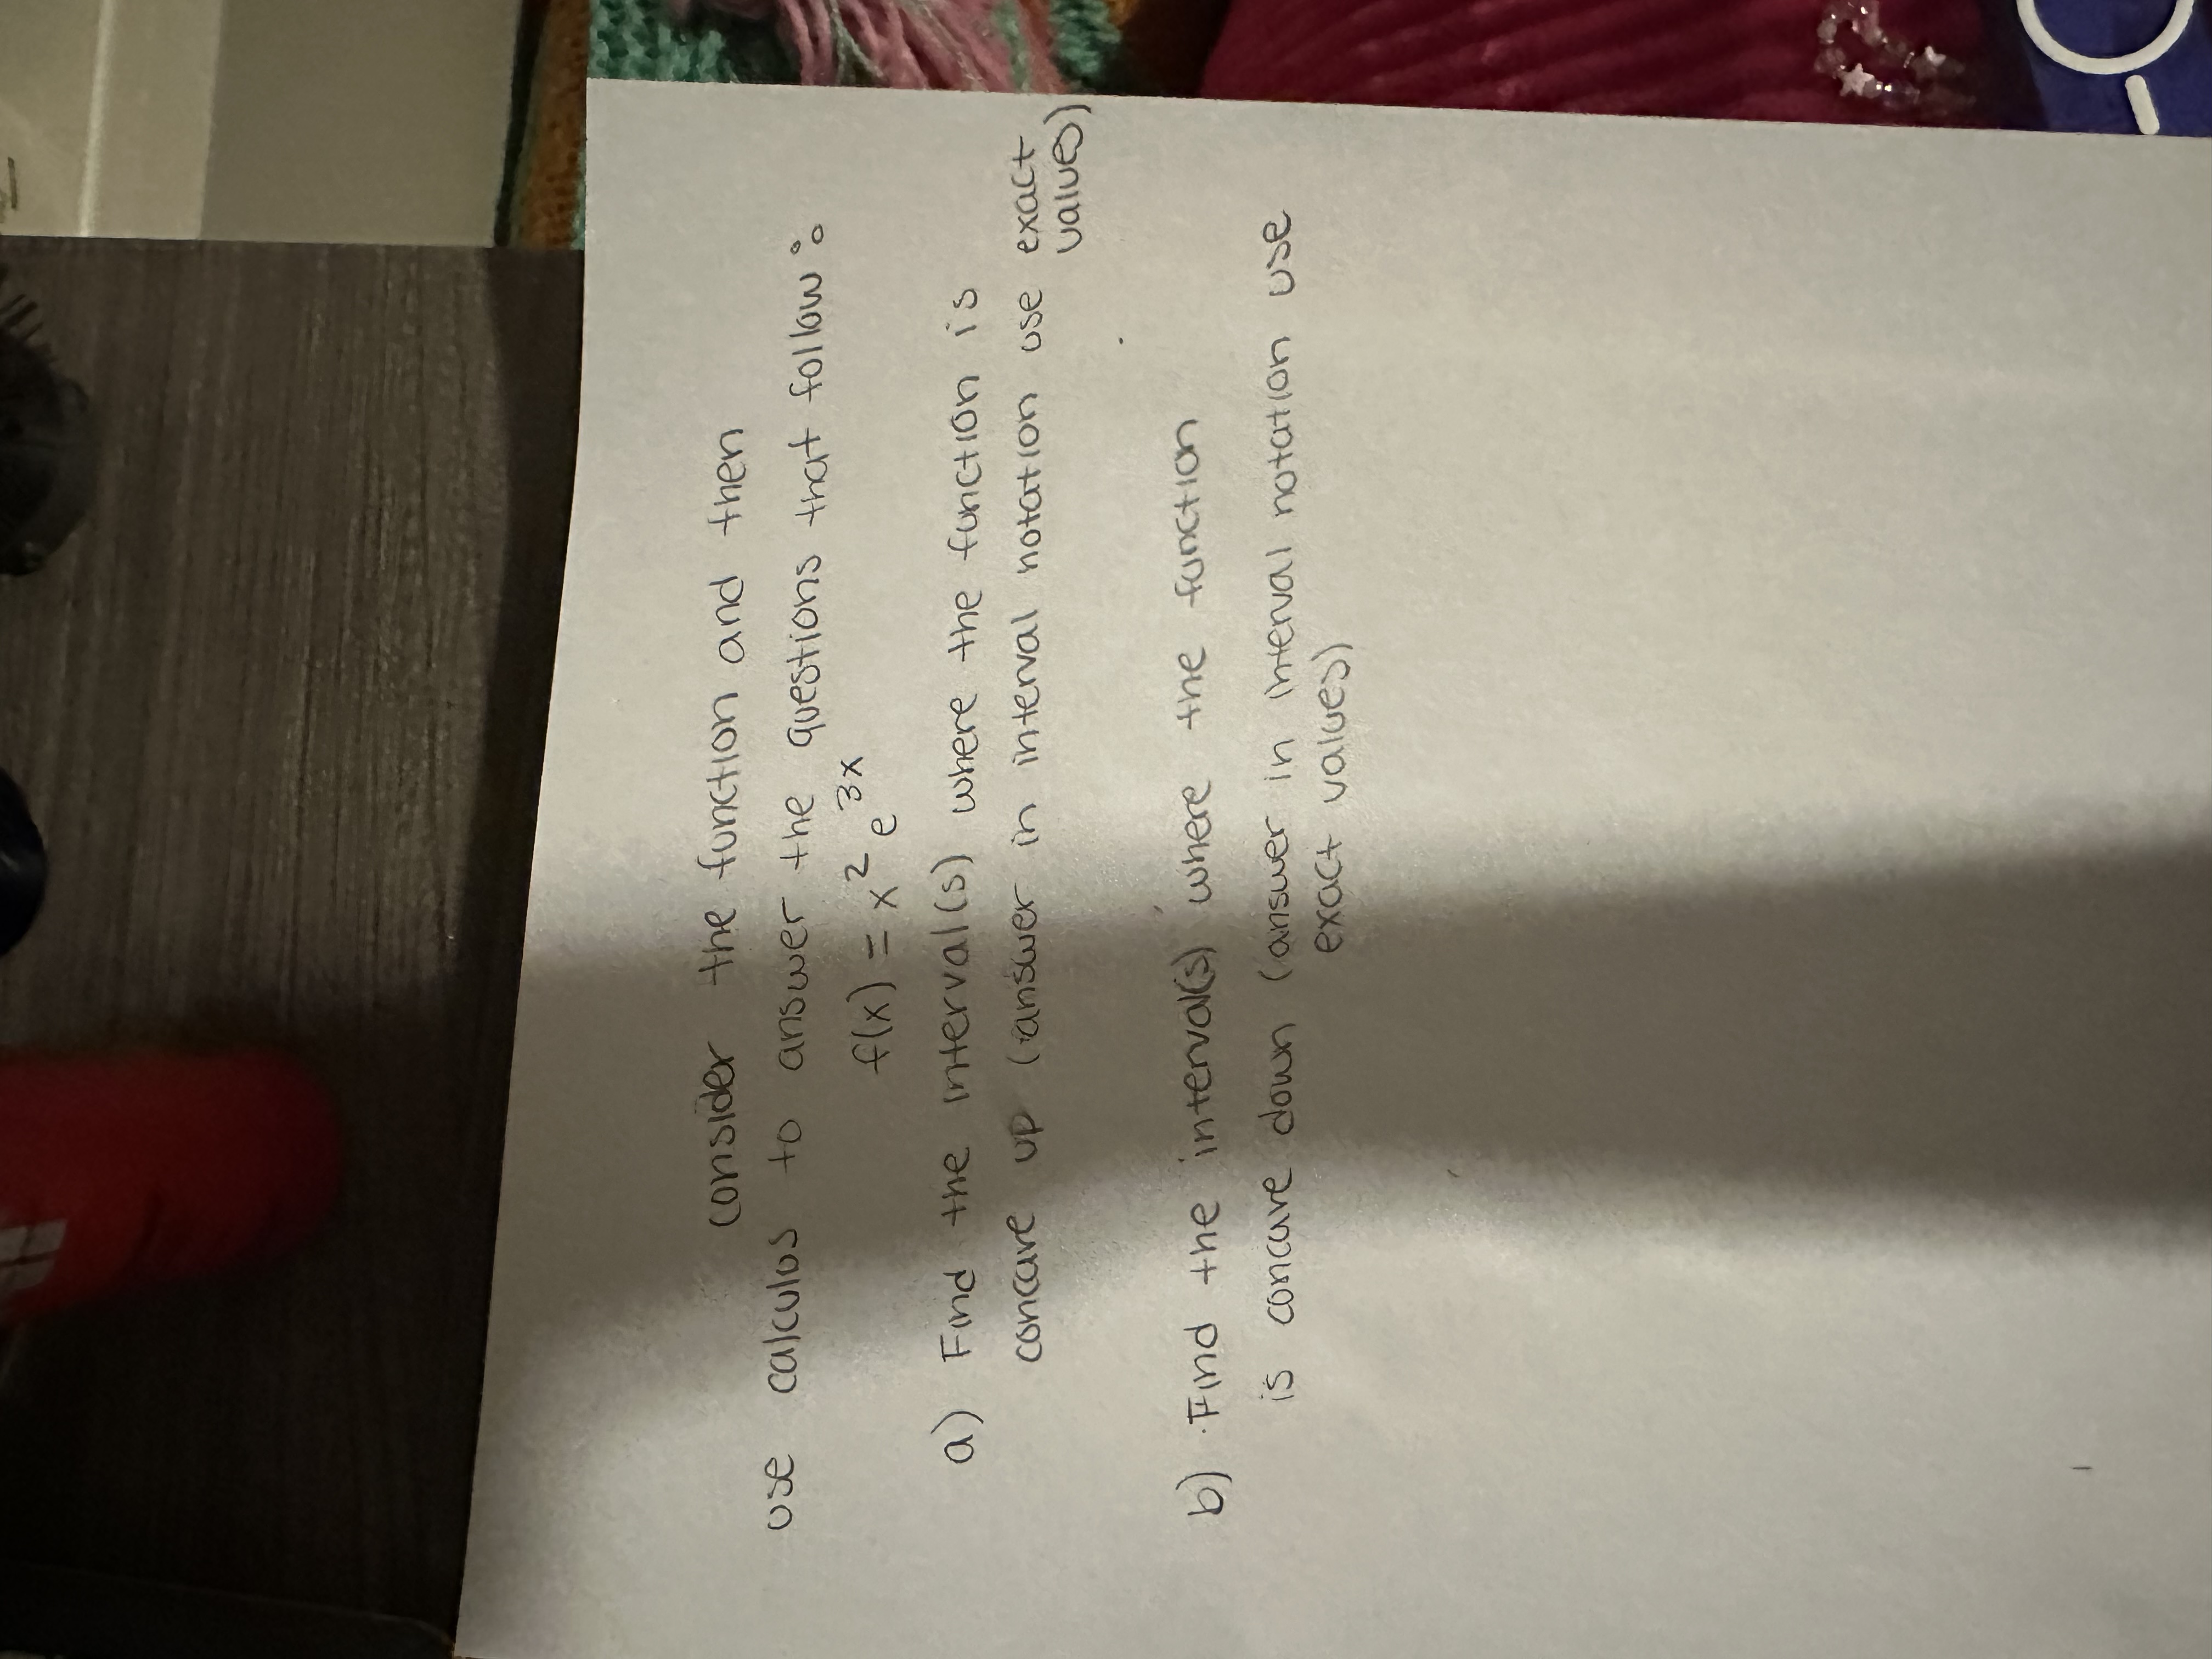 consider the function and then
use calculus to answer the questions that follow:
f(x) = x² e³ˣ
a) Find the interval(s) where the function is
concave up (answer in interval notation use exact
values)
b) Find the interval(s) where the function
is concave down (answer in interval notation use
exact values)